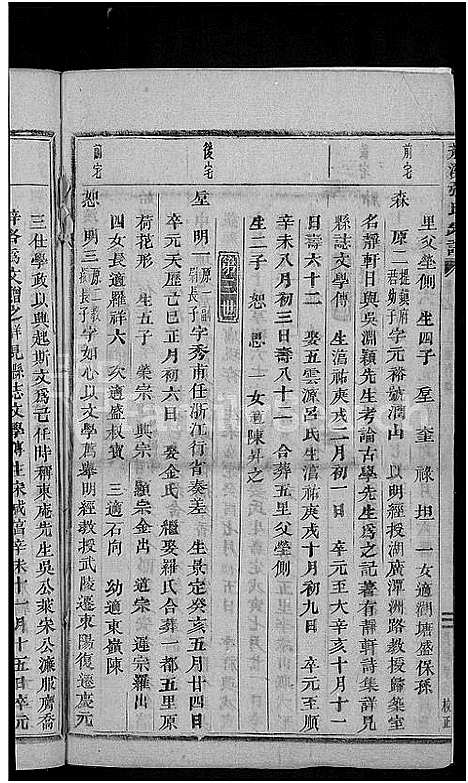 里父塋側 生四子 垕 奎 祿 坦 一女適湖塘盛保孫
前宅
森 原二 提領府君幼子 字元裕號潤山以明經授湖廣潭洲路教授歸築室
名靜軒日與吳淵穎先生考論古學先生為之記著有靜軒詩集詳見
縣誌文學傳 生淳祐庚戌二月初一日 卒元至大辛亥十月十一
日壽六十二 娶五雲源呂氏生淳祐庚戌十月初九日 卒元至順
辛未八月初三日壽八十二 合葬五里父塋側
生二子 恕 思 一女適陳昇之
第三世
後宅
垕 明一 原一副尉長子 字秀甫任浙江行省奏差 生景定癸亥五月廿四日
卒元天歷己巳正月初六日 娶金氏 繼娶羅氏合葬一都五里原
荷花形 生五子 榮宗 興宗 顯宗金出 道宗 遅宗羅出
四女長適雁祥六 次適盛叔寶 三適石向 幼適東嶺陳
前宅
恕 明三 原二教授長子 字如心以文學薦舉明經教授武陵遷東陽復遷慶元
三仕學政以興起斯文為己任時稱東庵先生吳公萊宋公濂服膺喬
梓各為文贈之詳見縣志文學傳生宋咸淳辛未十一月十五日卒元
校正